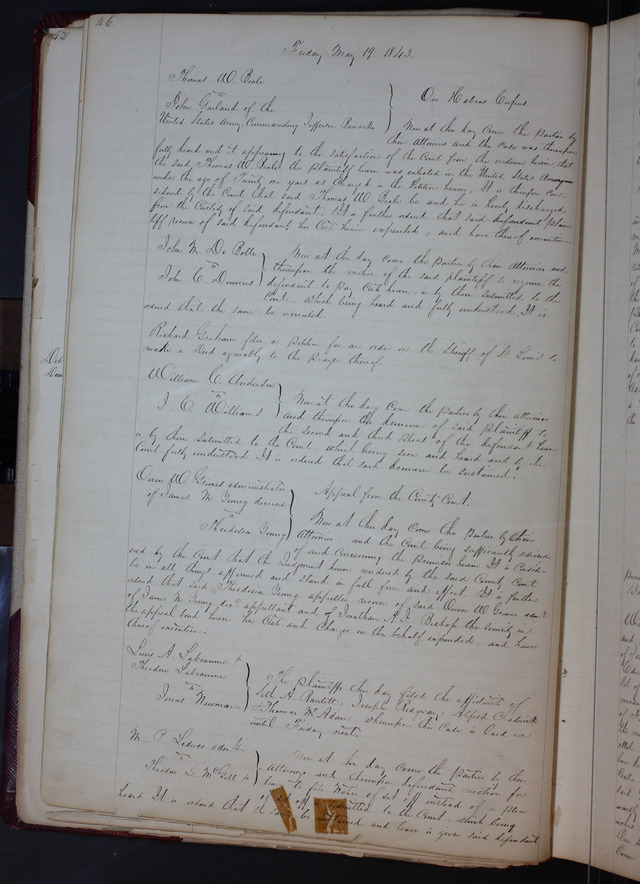 46.
Friday May 19. 1843.
Thomas W Beale
vs
John Garland of the
United States Army Commanding Jefferson Barracks
On Habeas Corpus
Now at this day come the parties by
their attornies and the Case was thereupon
fully heard and it appearing to the satisfaction of the Court from the evidence herein, that
the said Thomas W Beale the plaintiff herein was enlisted in the United States Army
under the age of Twenty one years as charged in the Petition herein, It is therefore con-
sidered by the Court that said Thomas W Beale be and he is hereby discharged
from the Custody of said defendant. It is further ordered that said plain-
tiff recover of said defendant his Costs herein expended, and have thereof execution
John M. De Bolle
vs
John C Dennis
Now at this day come the parties by their attornies and
thereupon the motion of the said plaintiff to require the
defendant to pay Costs herein is by them submitted to the
Court, which being heard and fully understood, It is
ordered that the same be overruled
Richard Graham files a petition for an order on the Sheriff of St Louis to
make a Deed agreeably to the prayer thereof.
William C. Anderson
vs
J. E. Williams
Now at this day Come the parties by their attornies
and thereupon the demurrer of said plaintiff to
the second and third pleas of the defendant herein
is by them submitted to the Court, which being seen and heard and by the
Court fully understood It is ordered that said demurrer be sustained.
Owen W Grimes administrator
of James M Young deceased
vs
Theodosia Young
Appeal from the County Court.
Now at this day Come the parties by their
attornies, and the Court being sufficiently advised
of and concerning the premises herein It is consid-
ered by the Court that the Judgment herein rendered by the said County Court
be in all things affirmed and stand in full force and effect. It is further
ordered that said Theodosia Young appellee recover of said Owen W Grimes admr
of James M Young decd appellant and of Jonathan A. J. Bishop the security in
the appeal bond herein her Costs and Charges in this behalf expended and have
thereof execution.
Louis A Labeaume +
Theodore Labeaume
vs
Jonas Newman
The plaintiffs this day filed the affidavits of
Seth A Ranlett, Joseph Ridgway, Alfred Chadwick
+ Thomas McAdam, whereupon the Case is laid over
until Friday next.
M. P. Leduc's admr
vs
Theodore D. McGill
Now at this day come the parties by their
attornies and thereupon defendants motion for
leave to file Notice of set off instead of a plea
of set off submitted to the Court, which being
heard It is ordered that the same be sustained and leave is given said defendant